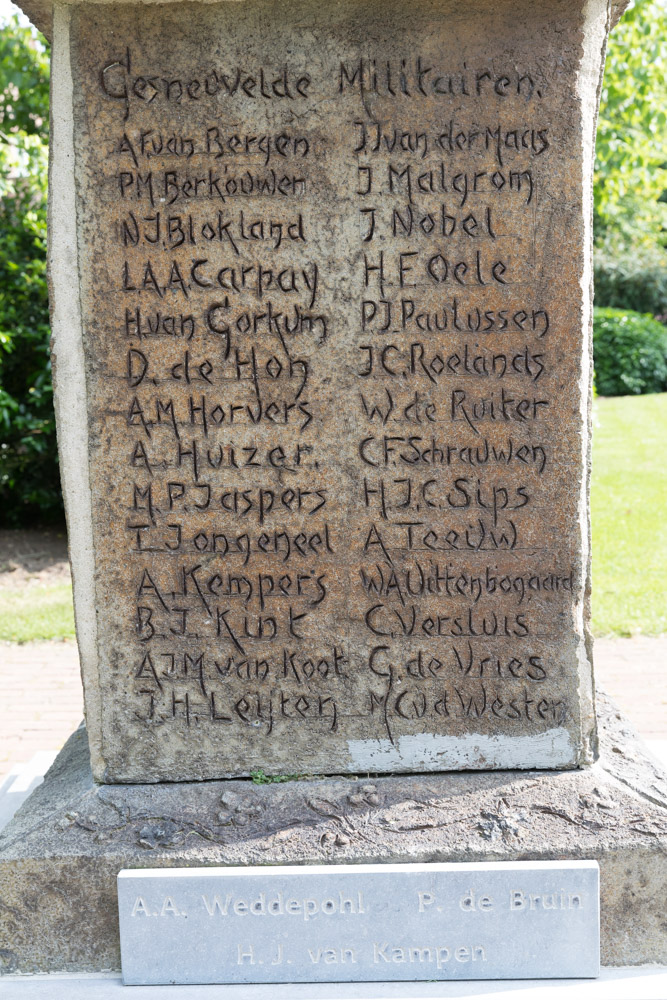 Gesneuvelde Militairen.
A.F. van Bergen
P.M. Berkouwen
N.J. Blokland
L.A.A. Carpay
H. van Gorkum
D. de Hon
A.M. Horvers
A. Huizer.
M.P. Jaspers
T. Jongeneel
A. Kempers
B.J. Kint
A.J.M. van Koot
J.H. Leyten
J.J van der Maas
J. Malgrom
J. Nobel
H.F. Oele
P.J. Paulussen
J.C. Roelands
W. de Ruiter
C.F. Schrauwen
H.J.C. Sips
A. Teeuw
W.A. Uittenbogaard
C. Versluis
G. de Vries
M.C. v.d. Westen
A.A. Weddepohl P. de Bruin
H.J. van Kampen